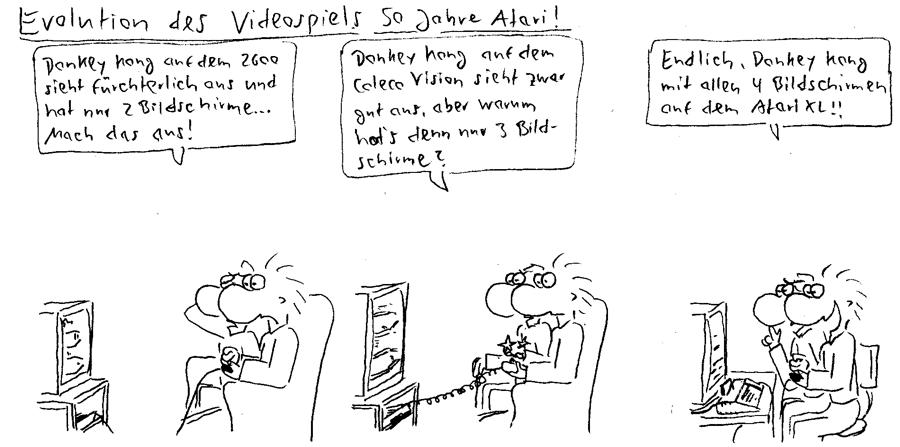 Evolution des Videospiels 50 Jahre Atari!
Donkey Kong auf dem 2600
sieht fürchterlich aus und
hat nur 2 Bildschirme...
Mach das aus!
Donkey Kong auf dem
Coleco Vision sieht zwar
gut aus, aber warum
hat's denn nur 3 Bild-
schirme?
Endlich, Donkey Kong
mit allen 4 Bildschirmen
auf dem Atari XL!!